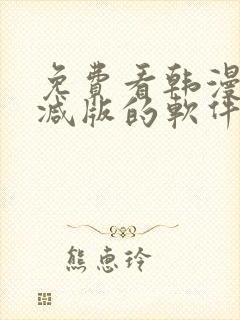 免費看韩漫
减版的軟件
熊惠玲